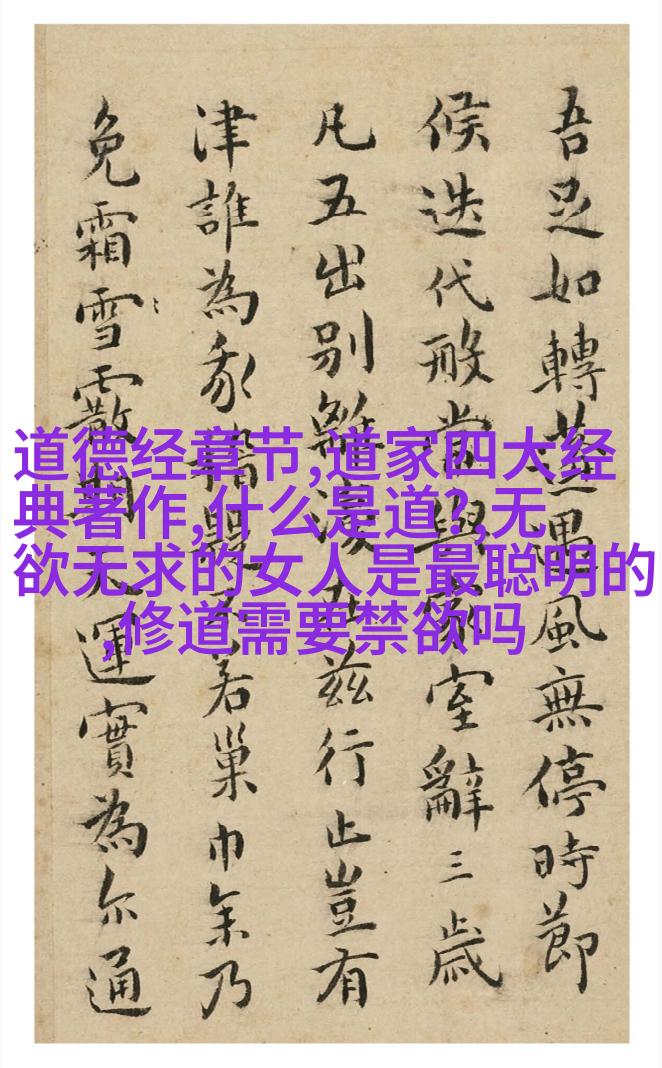 吾足如轉蓬遇風無停時節
候迭代當與家室辭三歲
凡五出別離淚茲行止豈有
津誰為若巢巾乃
免霜雪霰天運實為尔通
道德经章节,道家四大经
典著作,什么是道?,无
欲无求的女人是最聪明的
,修道需要禁欲吗